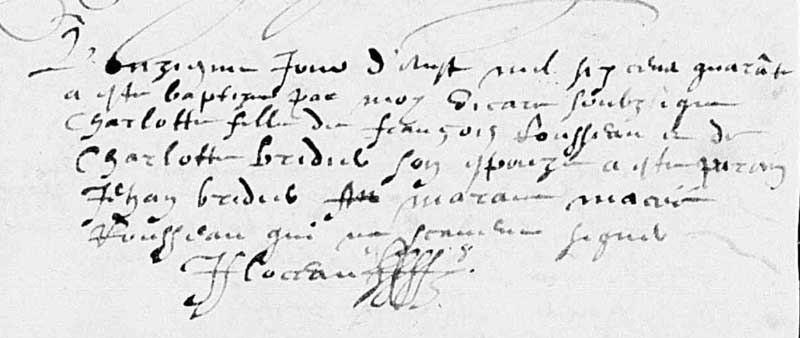 L'onziesme Jour d'aust mil six cens quarāte
a este baptizee par moy vicaire soubzsigne
Charlotte fille de françois Rousseau et de
Charlotte bridier son espouze a este parain
Jehan bridier maraine marie
Rousseau qui ne scavent signer